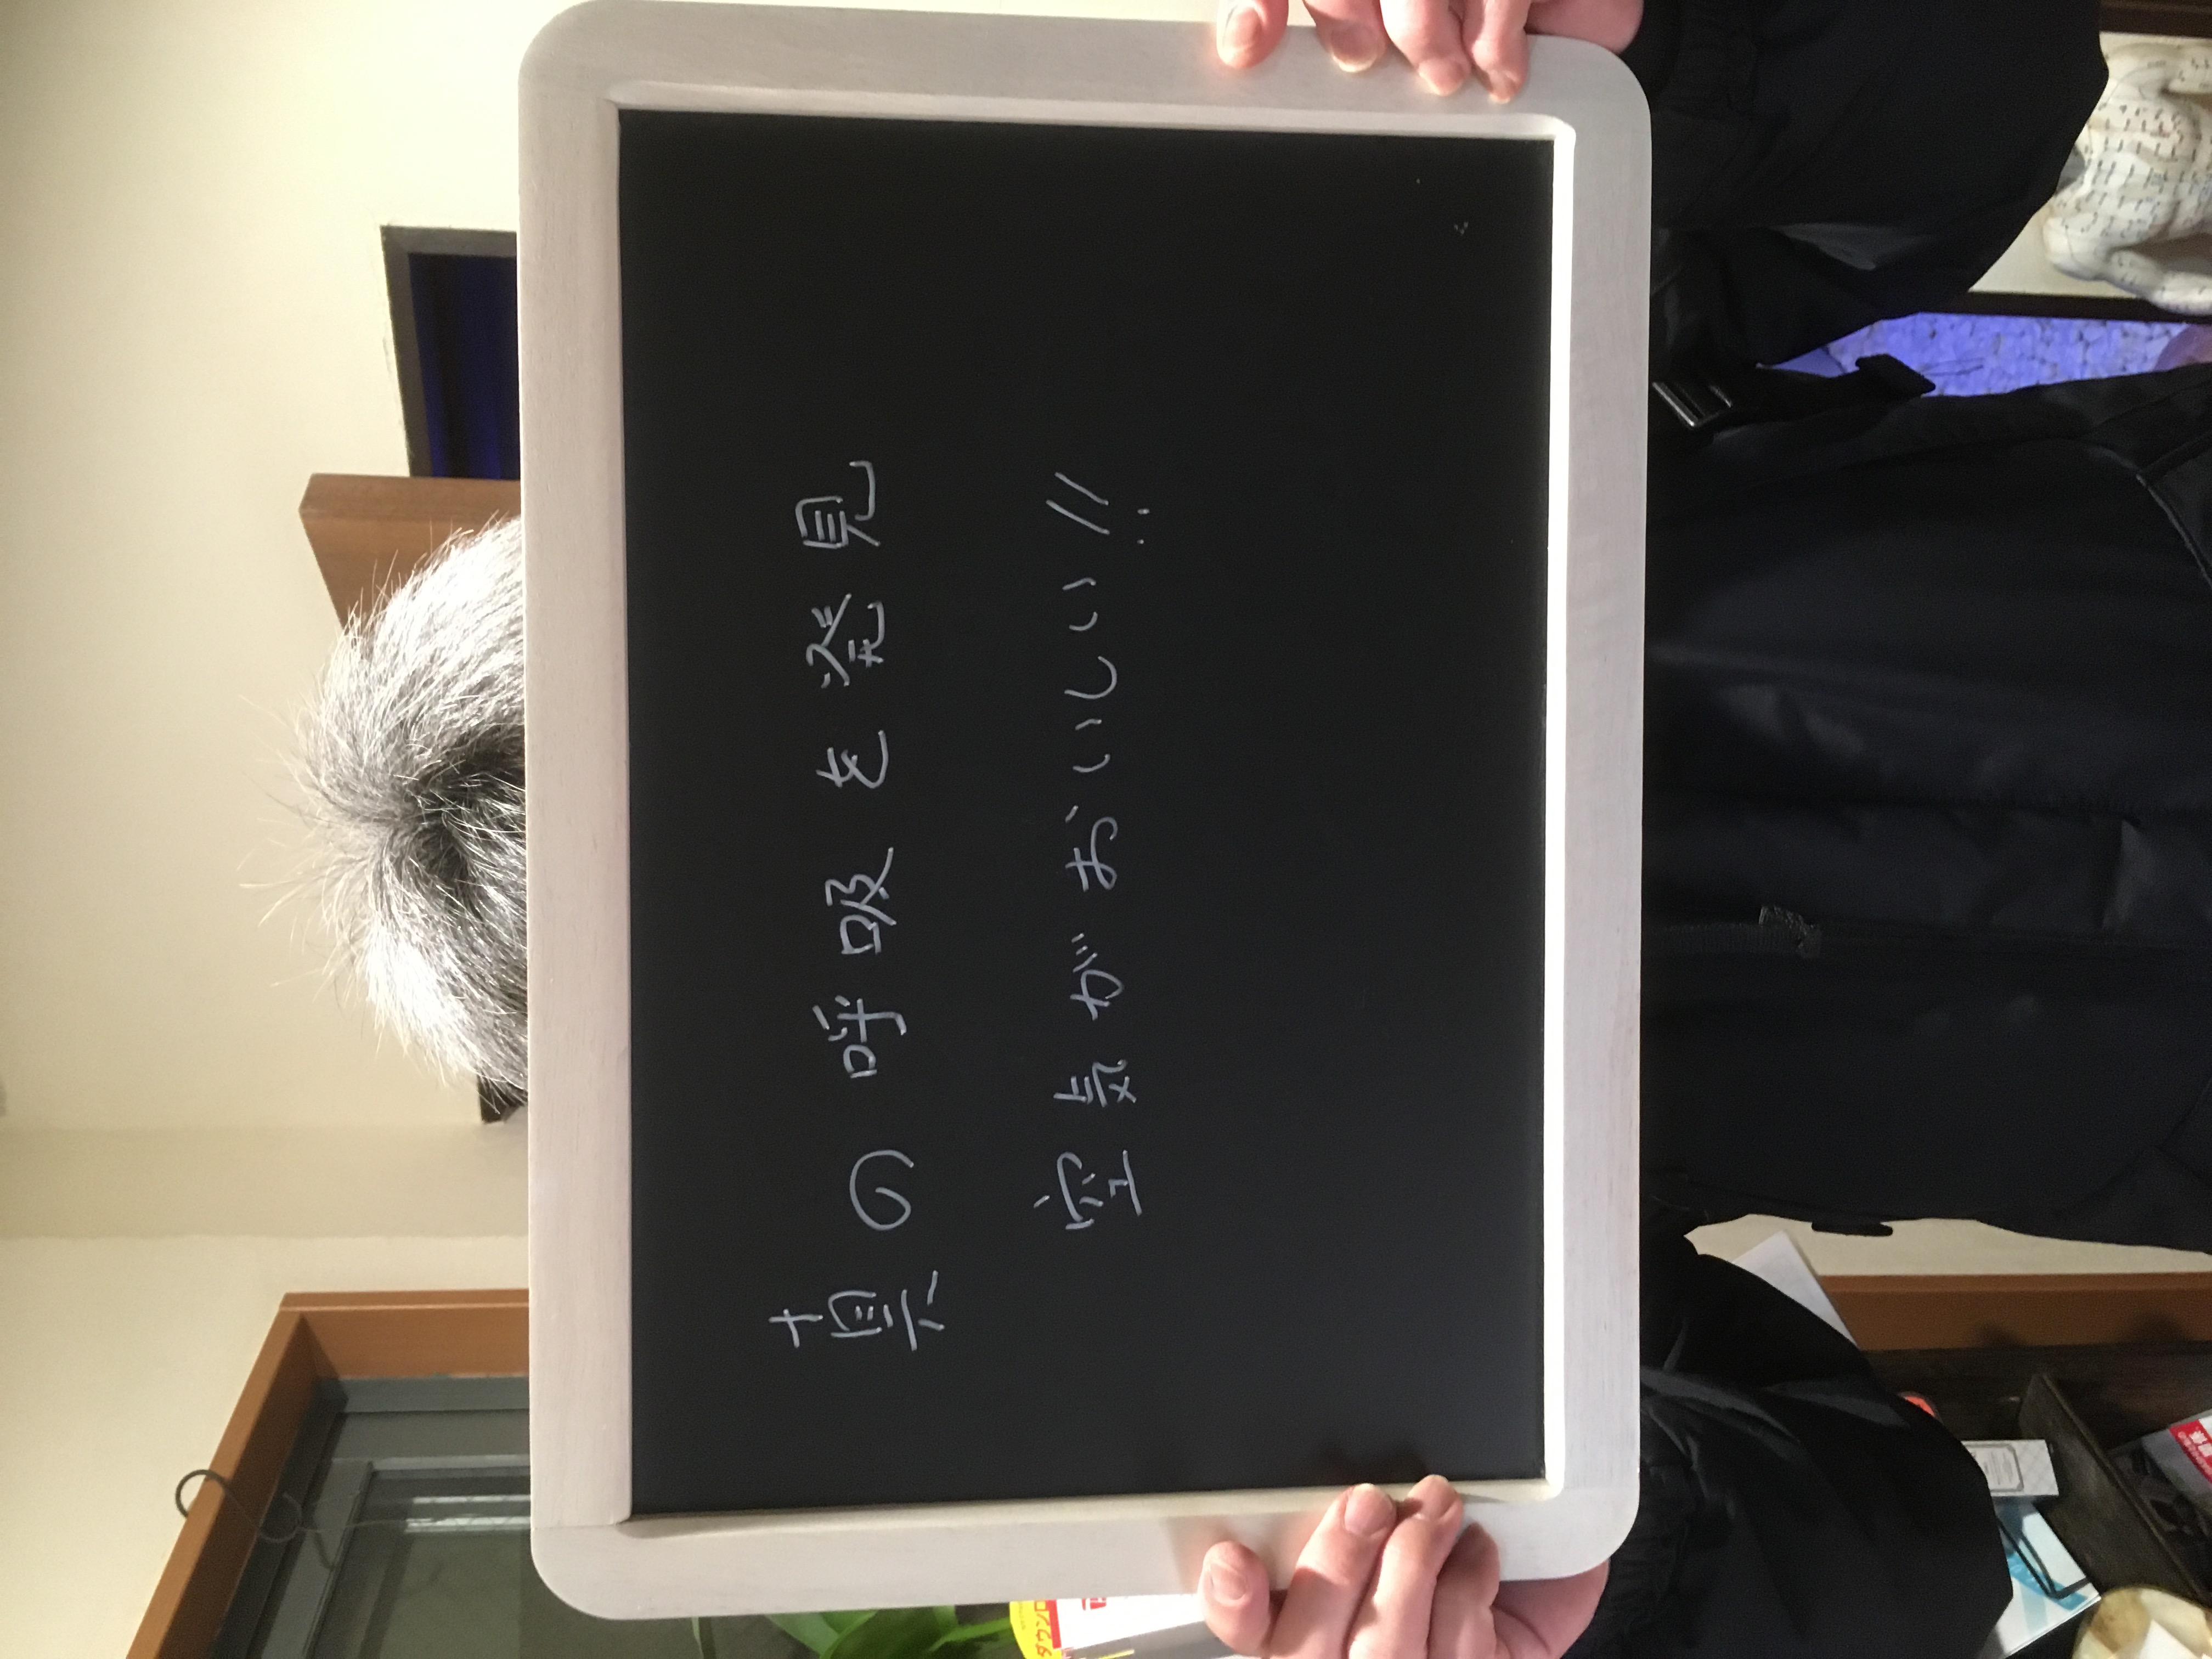 真の呼吸を発見
空気がおいしい!!